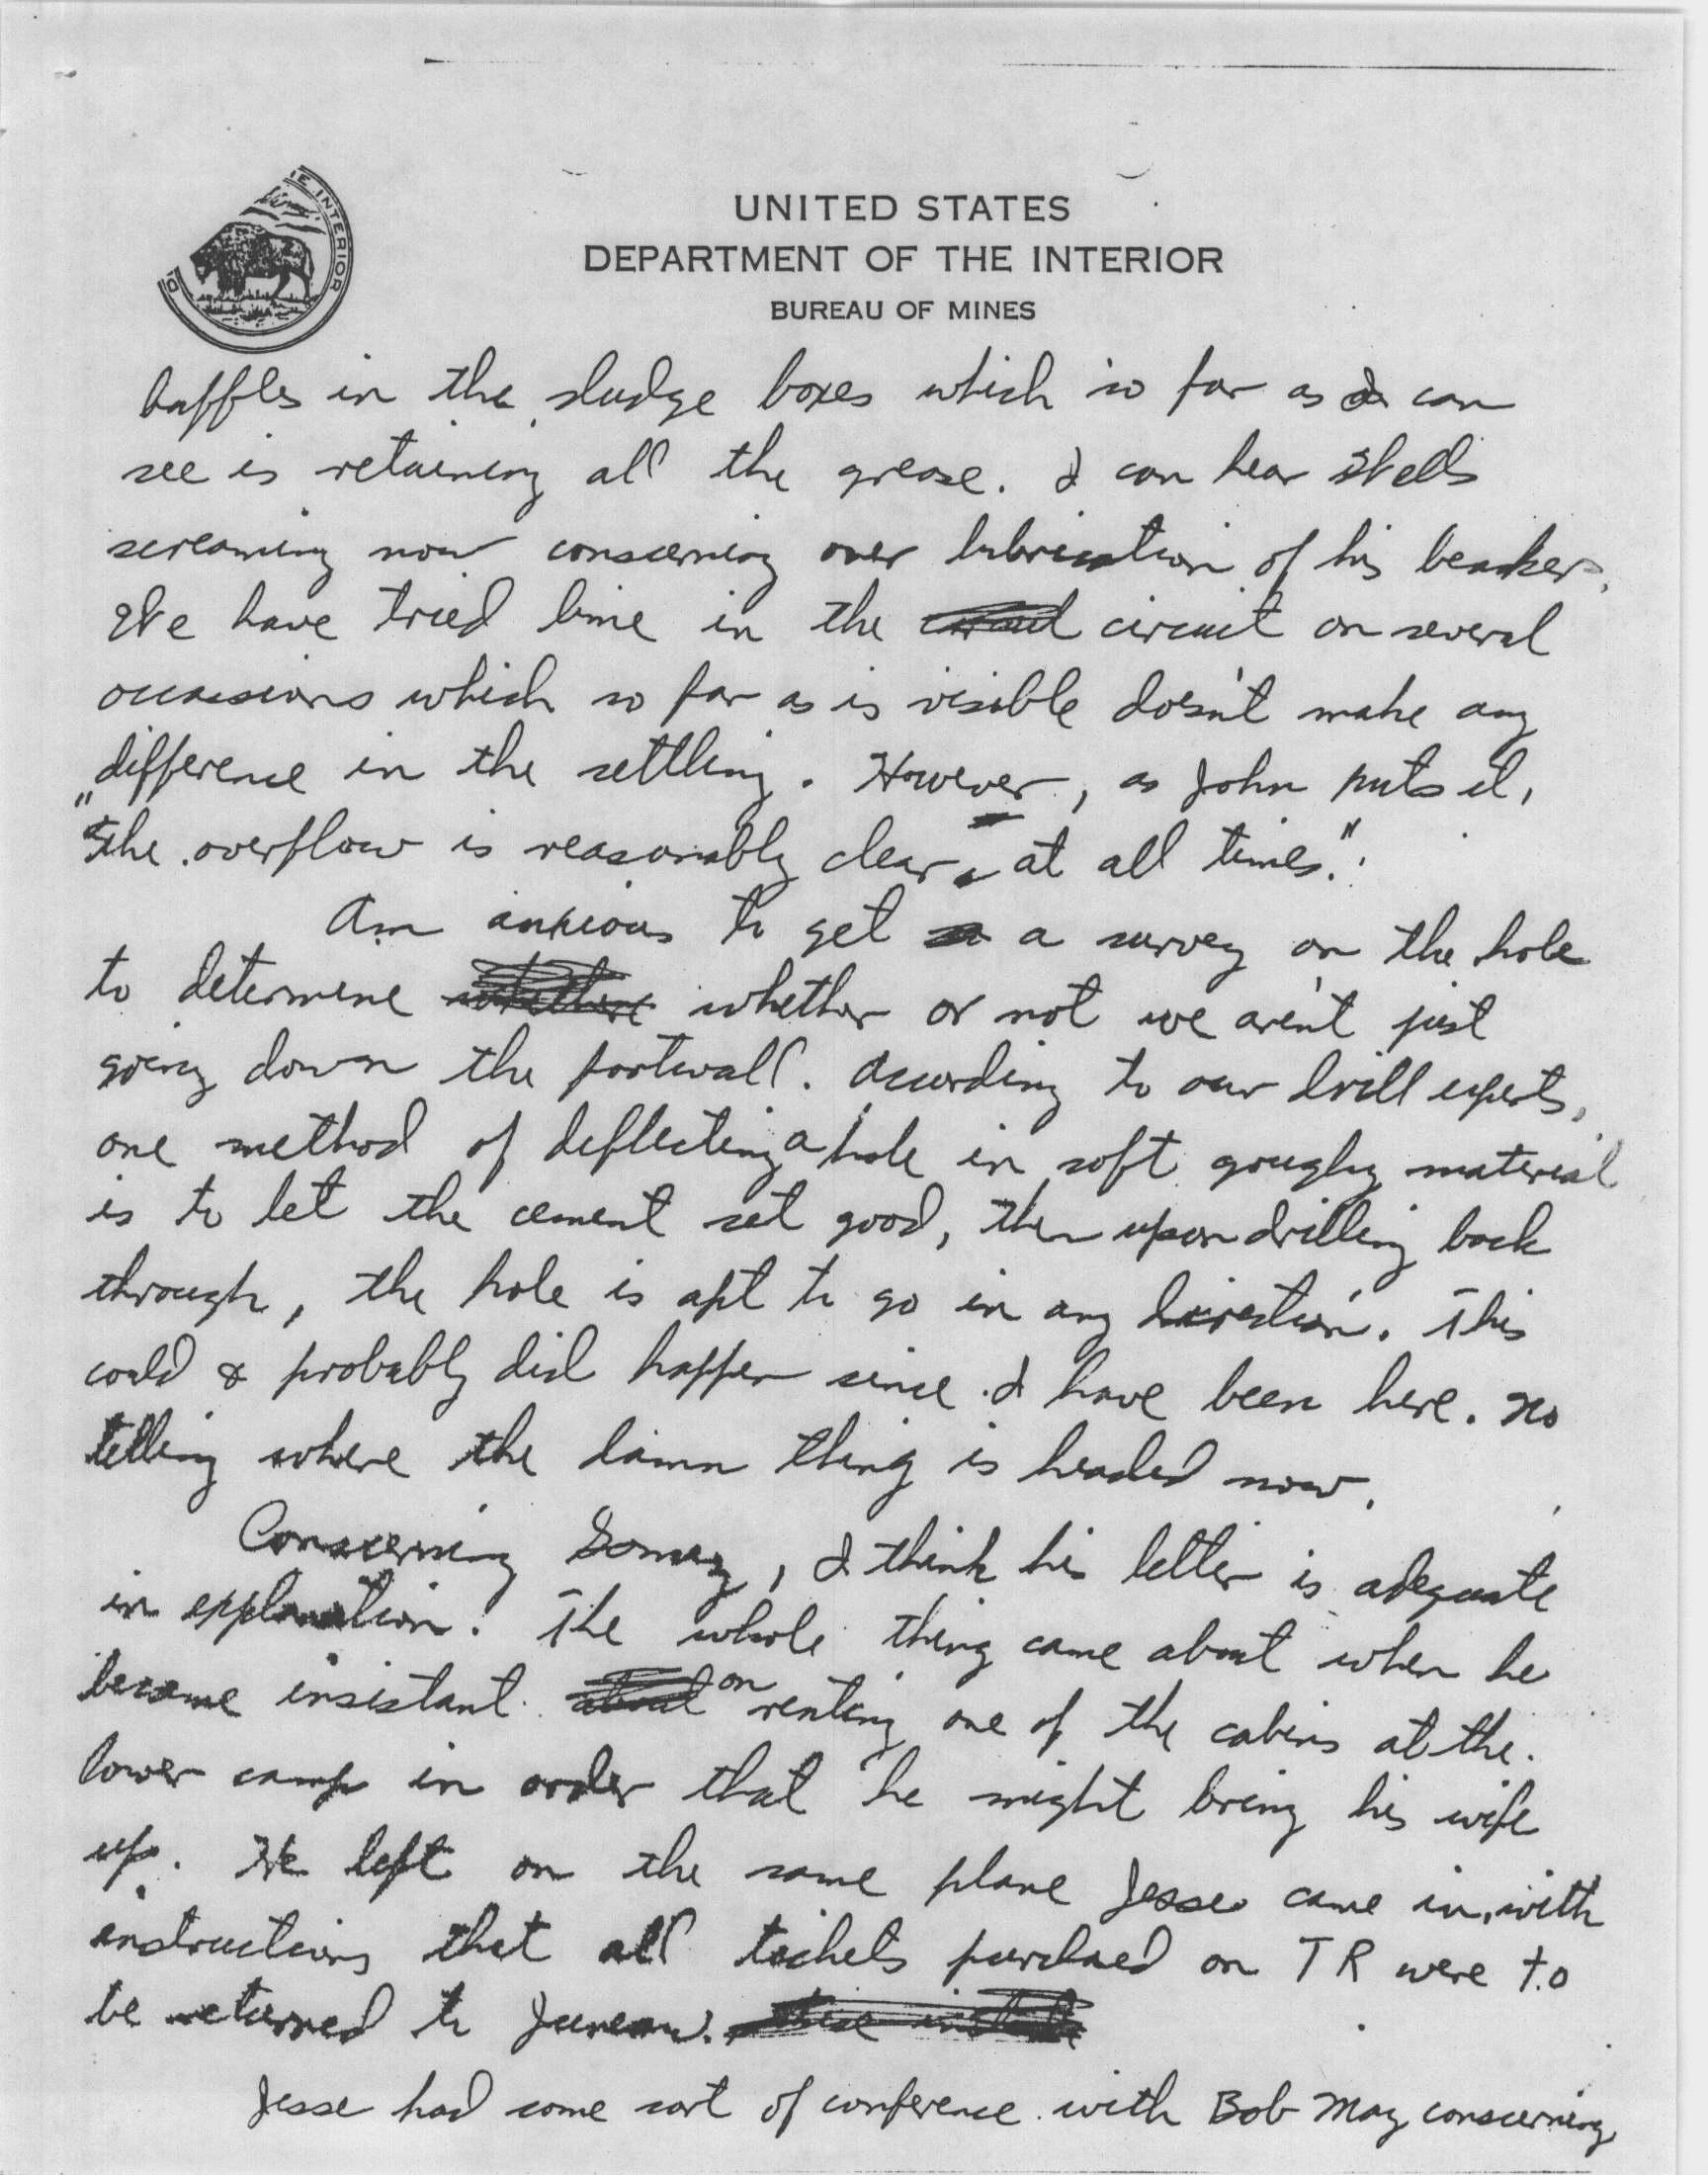 E INTERIOR
D
UNITED STATES
DEPARTMENT OF THE INTERIOR
BUREAU OF MINES
baffles in the sludge boxes which so far as I can
see is retaining all the grease. I can hear Wells
screaming now conscerning over lubrication of his beaker.
We have tried lime in the circuit on several
occassions which so far as is visible doesn't make any
difference in the settling. However, as John puts it,
"the overflow is reasonably clear at all times."
Am anxious to get a survey on the hole
to determine whether or not we aren't just
going down the footwall. According to our drill experts,
one method of deflecting a hole in soft goughy material
is to let the cement set good, then upon drilling back
through, the hole is apt to go in any direction. This
could & probably did happen since I have been here. No
telling where the damn thing is headed now.
Conscerning , I think his letter is adequate
in explanation. The whole thing came about when he
became insistant on renting one of the cabins at the
lower camp in order that he might bring his wife
up. He left on the same plane Jesse came in, with
instructions that all tickets purchased on TR were to
be returned to Juneau.
Jesse had some sort of conference with Bob May conscerning